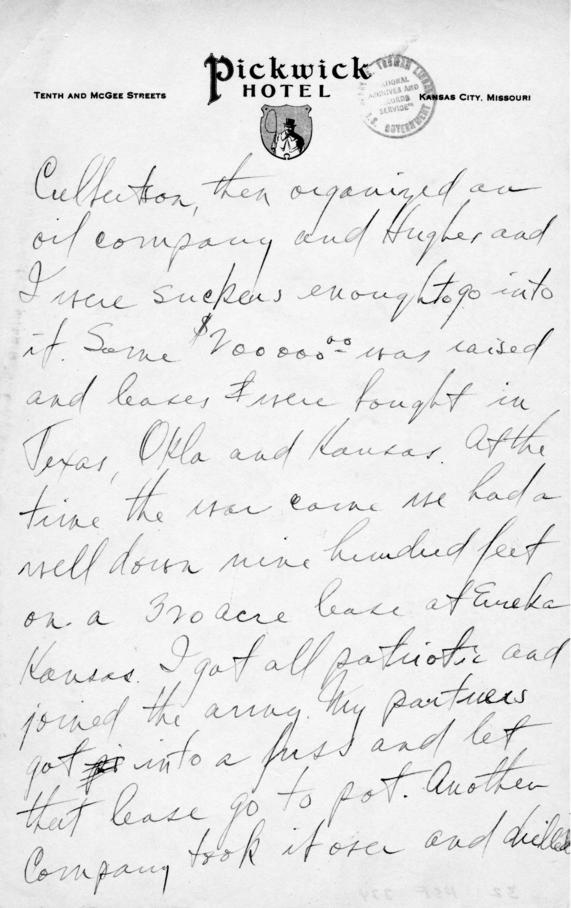 Pickwick
HOTEL
TENTH AND MCGEE STREETS
KANSAS CITY, MISSOURI
NATIONAL
ARCHIVES AND
RECORDS
SERVICE
U.S. GOVERNMENT
Culbertson, then organized an
oil company and Hughes and
I were suckers enough to go into
it. Some $200000.00 was raised
and leases were bought in
Texas, Okla and Kansas. At the
time the war came we had a
well down nine hundred feet
on a 320 acre lease at Eureka
Kansas. I got all patriotic and
joined the army. My partners
got into a fuss and let
that lease go to pot. Another
Company took it over and drilled